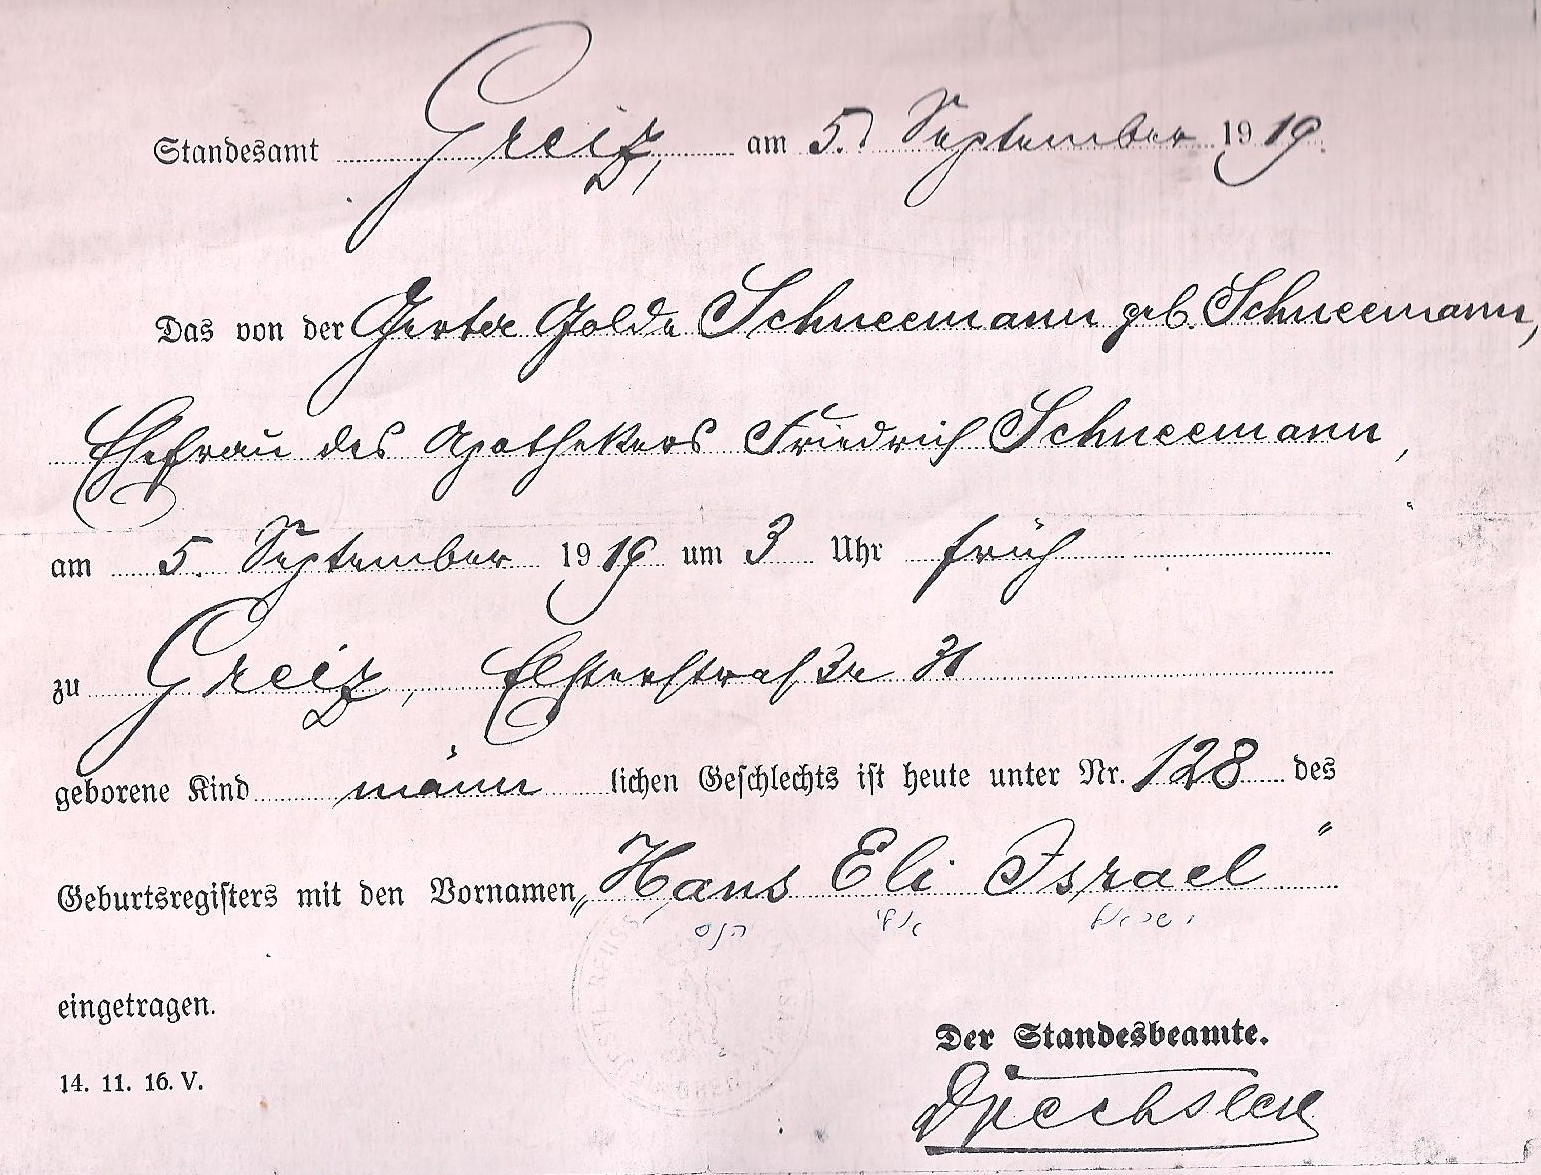 Standesamt Greiz, am 5. September 1919.
Das von der Golda Schneemann geb. Schneemann,
Ehefrau des Apothekers Friedrich Schneemann,
am 5. September 1919 um 3 Uhr früh
zu Greiz, Elsterstraße
geborene Kind männlichen Geschlechts ist heute unter Nr. 128 des
Geburtsregisters mit den Vornamen „Hans Eli Israel"
הנס אלי ישראל
eingetragen.
Der Standesbeamte.
14. 11. 16. V.